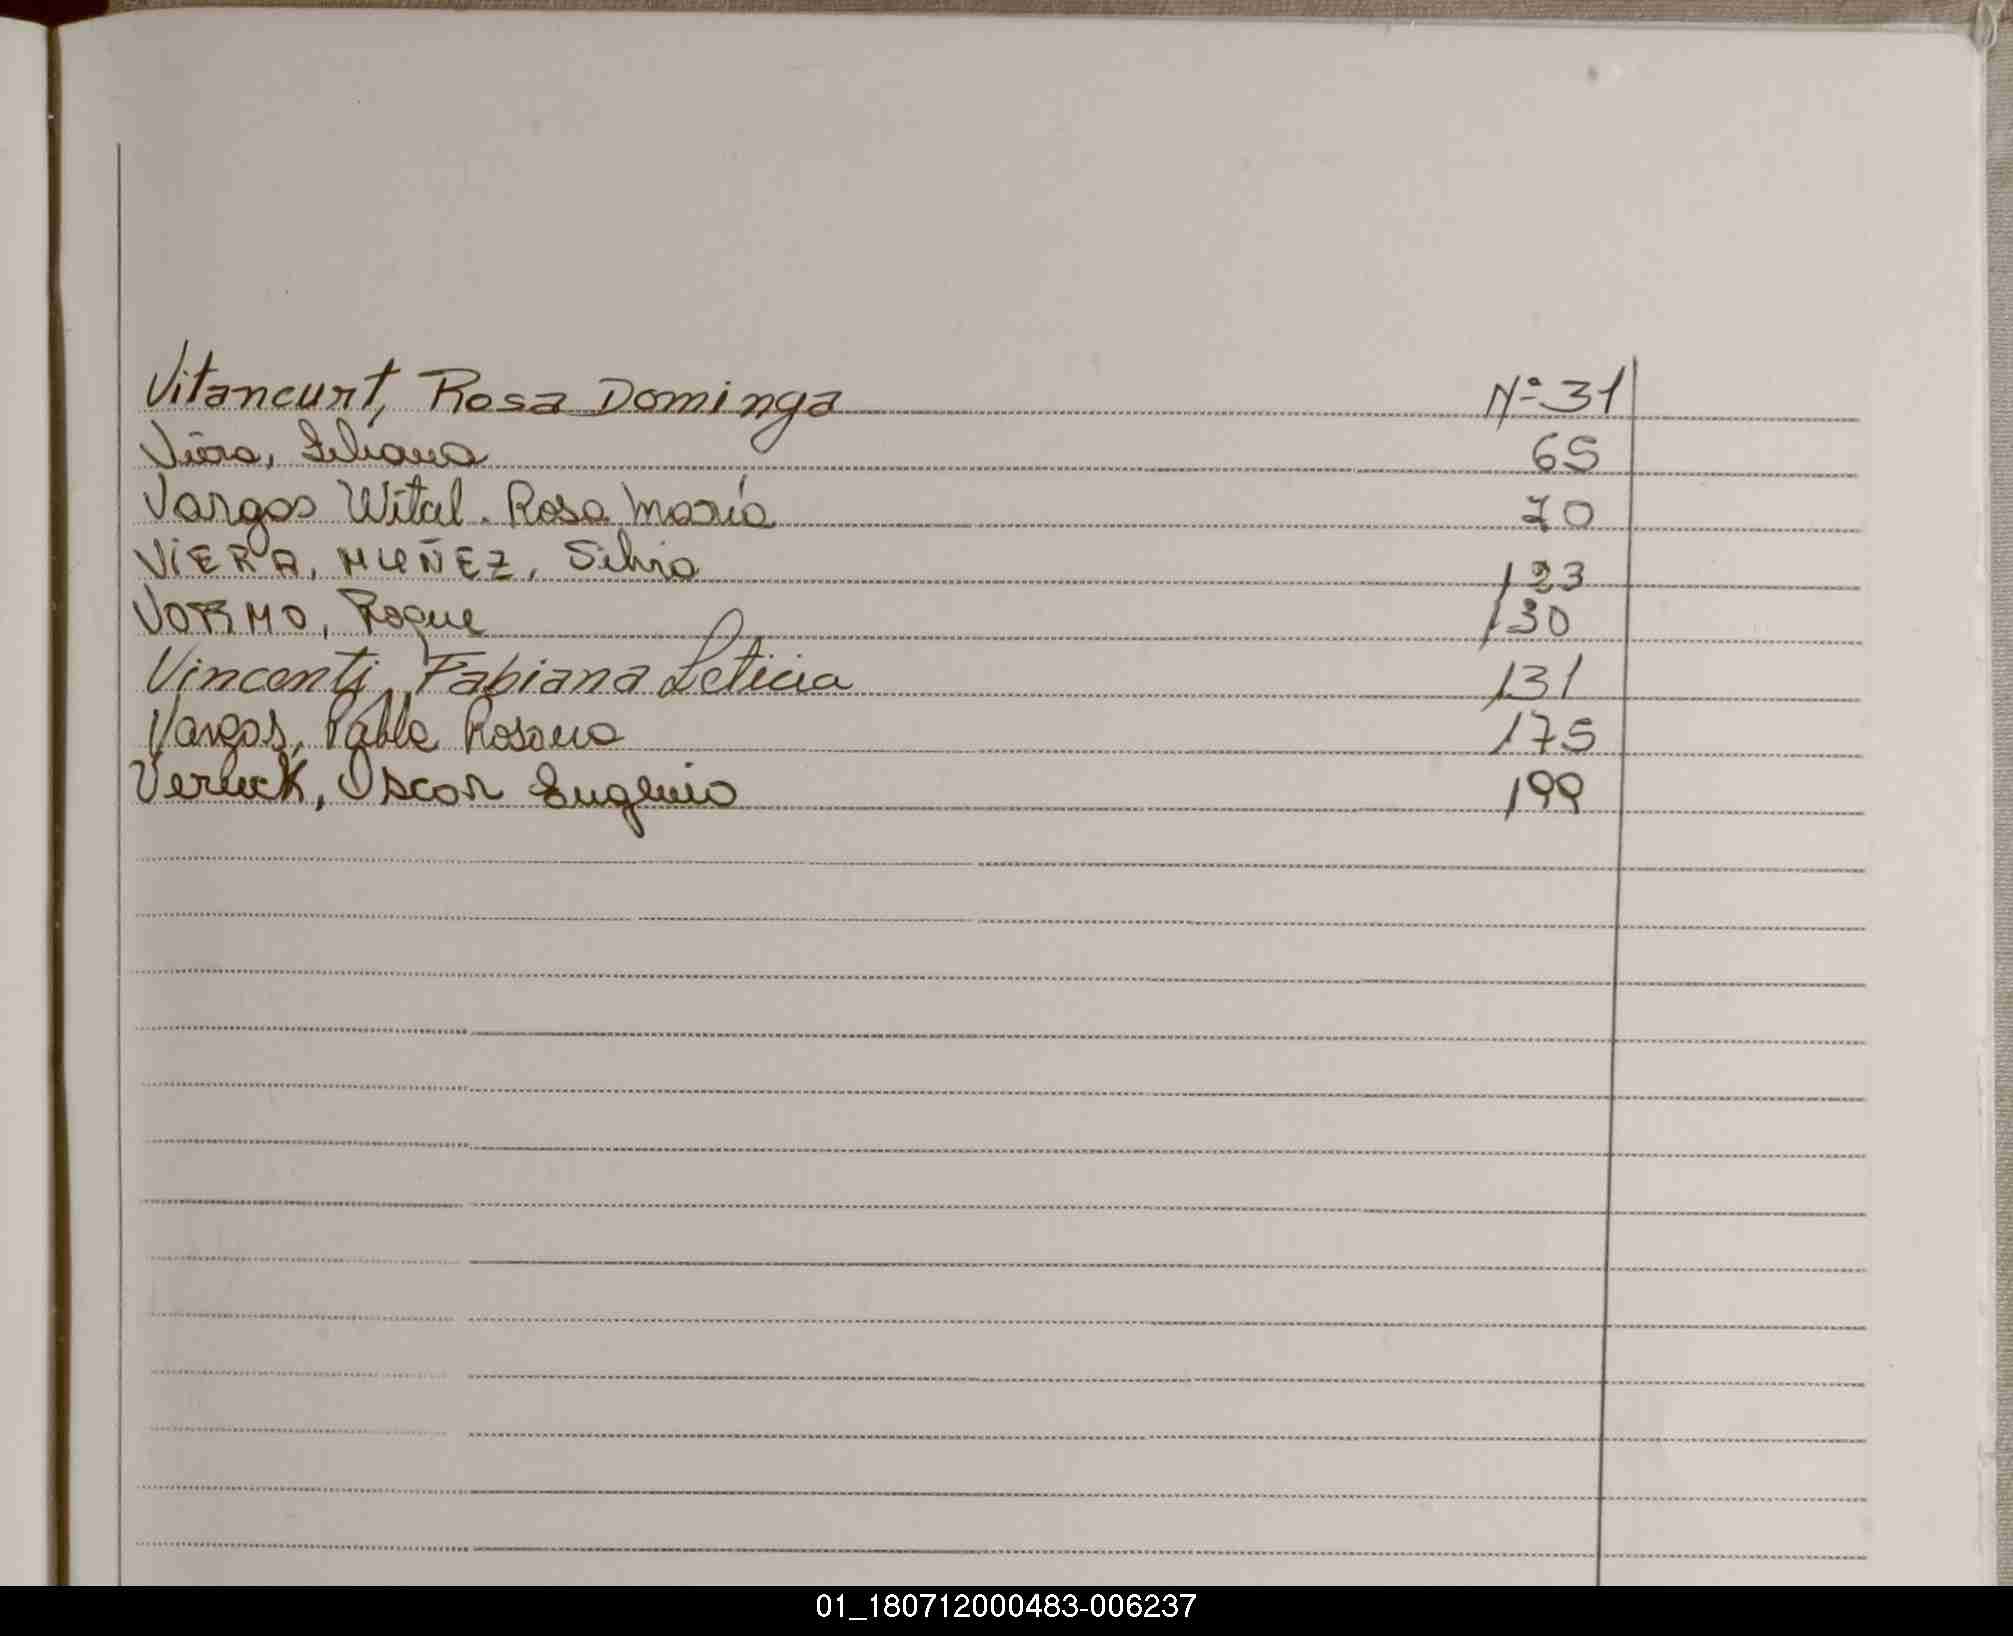 Vitancurt, Rosa Dominga Nº 31
Viera, Liliana 65
Vargas Wital. Rosa María 70
ViERA, MUÑEZ, Silvia 123
VORMO, Roque 130
Vinconti, Fabiana Leticia 131
Vargas, Pabla Rosana 175
Veruck, Oscar Eugenio 199
01_180712000483-006237